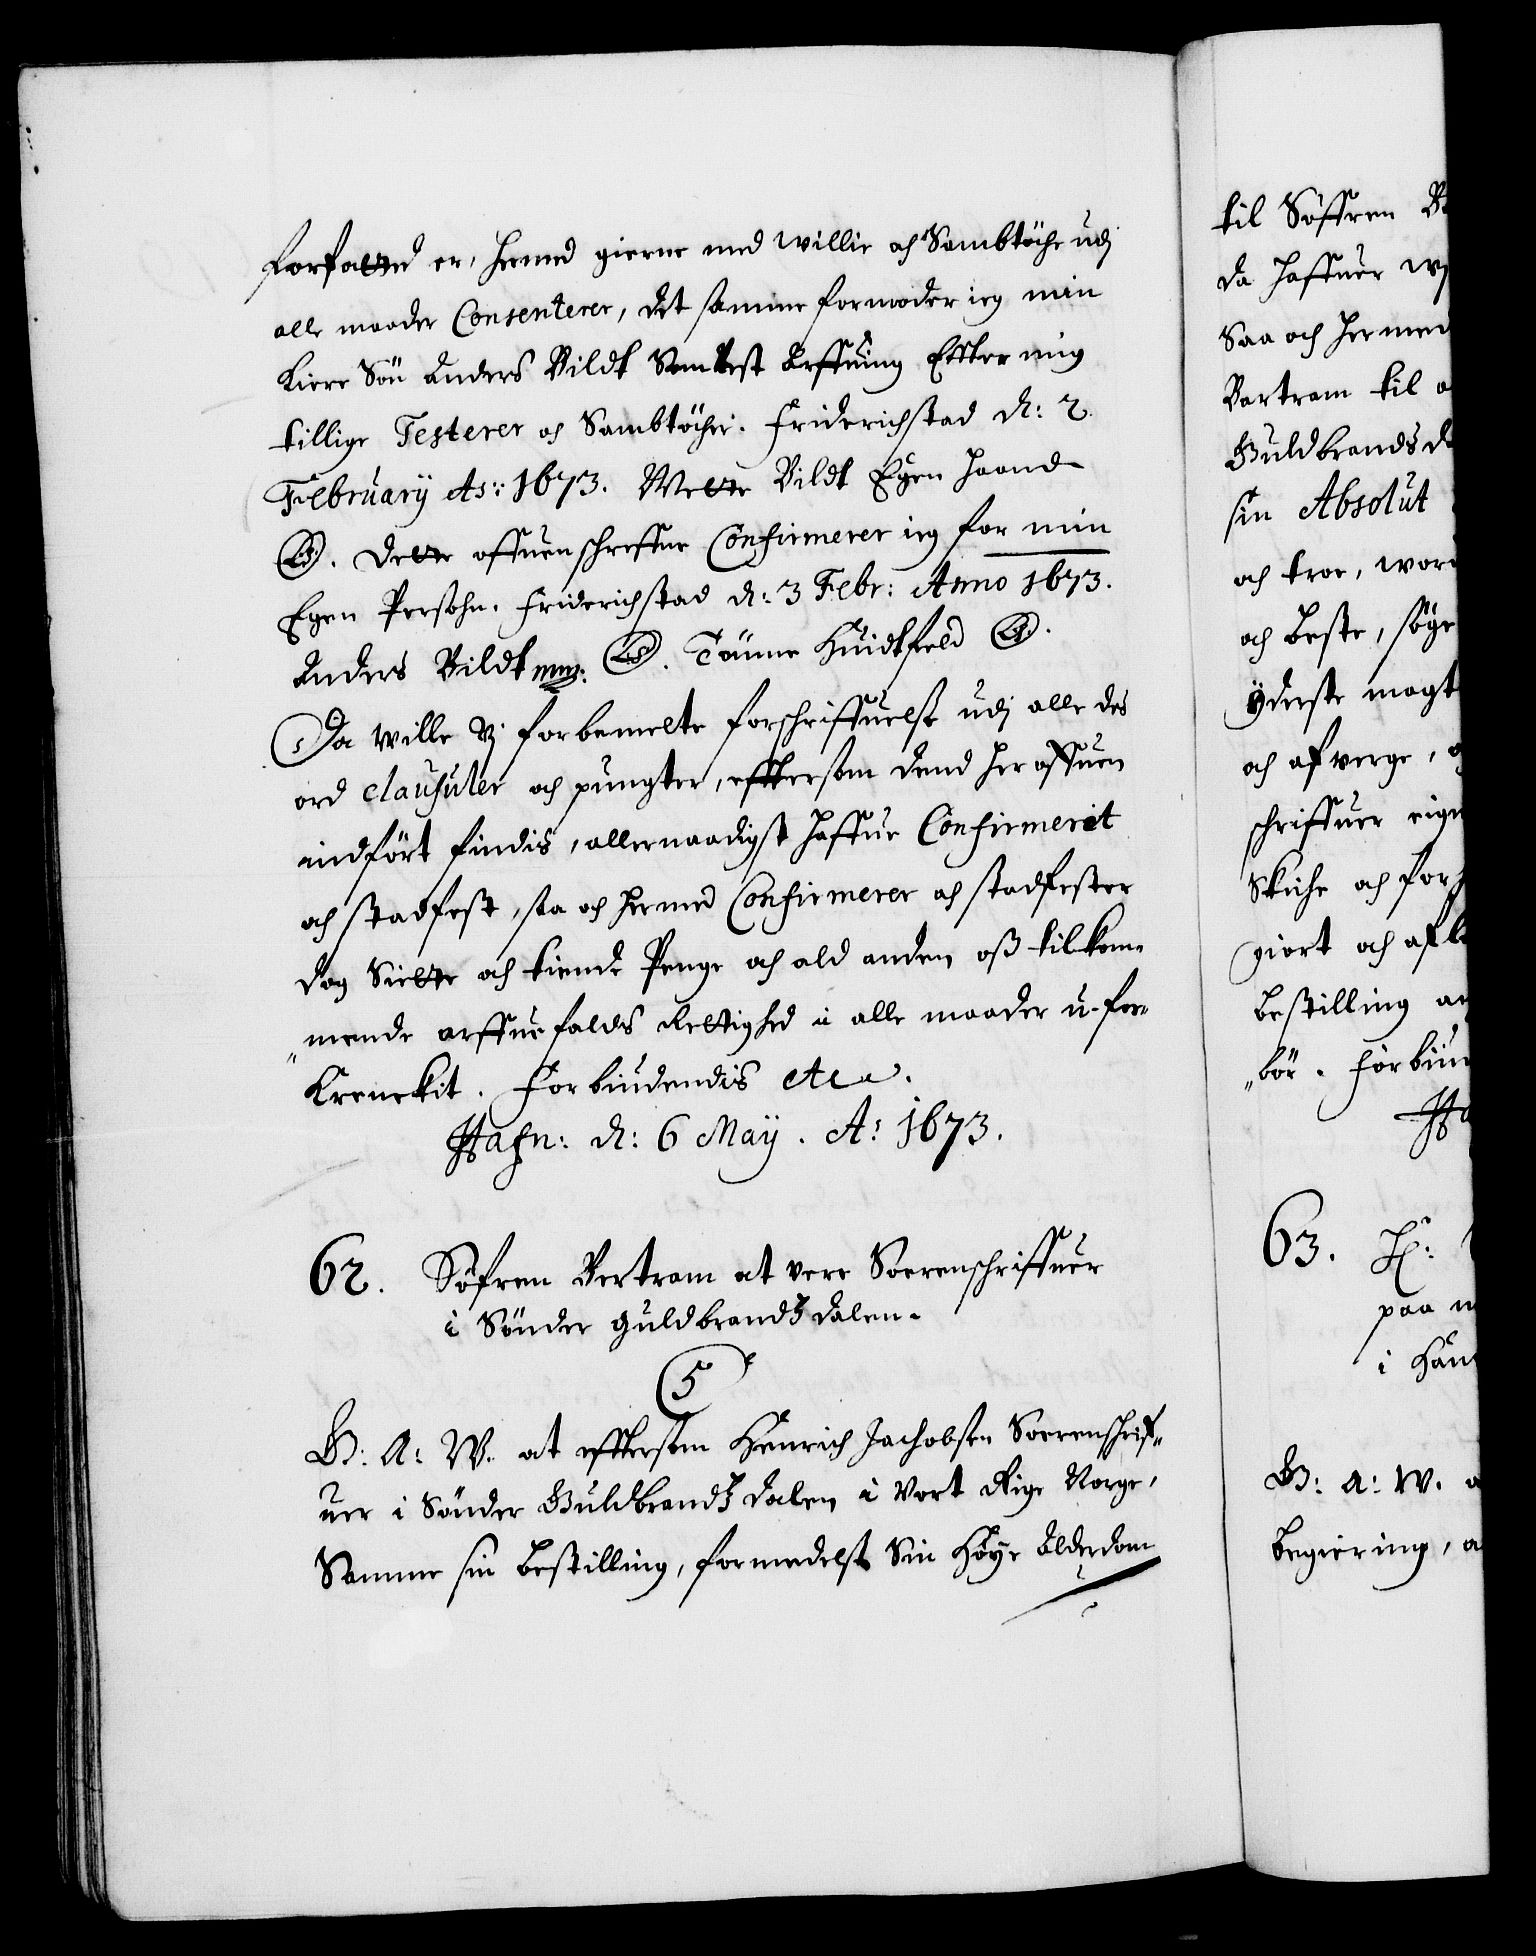 forfatted er, hermed gierne med willie och Sambtöche udj
alle maader Consenterer, det samme formoder ieg min
kiere Sön Anders Bildt Som est Arffuing Efter mig
tillige Testerer och Sambtöcher. Friderichstad d: 2
February Ao: 1673. Mette Bildt Egen haand
LS. Dette offuenschreffne Confirmerer ieg for min
Egen Persohn. Friderichstad d: 3 Febr: Anno 1673.
Anders Bildt mpp: LS. Tönne Huidtfeld LS.
Da wille Vi forbemelte forschriffuelse udj alle des
ord clausuler och pungter, eftersom dend her offuen
indfört findis, allernaadigst haffue Confirmerit
och stadfest, saa och hermed Confirmerer och stadfester
dog Siette och tiende Penge och ald anden oß tilkom-
"mende arffuefalds Rettighed i alle maader u-for-
Krenckit. Forbiudendis etc.
Hafn: d: 6 May. Ao 1673.
62. Söfren Bertram at vere Soerenschriffuer
i Sönder Guldbrandzdalen.
5
G: A: W. at eftersom Henrich Jachobsen Soerenschrif-
uer i Sönder Guldbrandzdalen i Vort Rige Norge,
Samme sin bestilling, formedelst Sin höye Alderdom
til Söffren
da haffuer
Saa och hermed
Bartram til
Guldbrandsd
sin Absolut
och troe,
och beste, söge
yderste magt
och afverge,
schriffuer
Skiche och for
giort och
bestilling
"bör. Forbiu
63.
paa
i
G: A: W.
begiering,